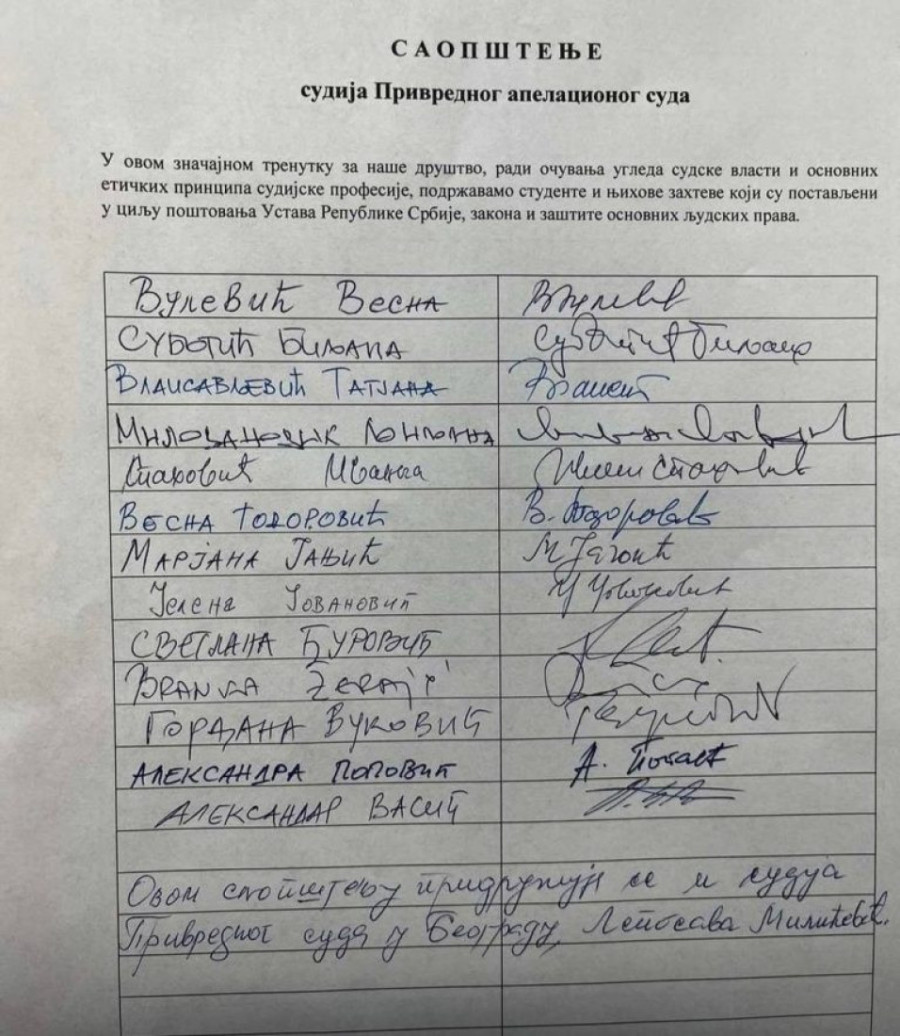 САОПШТЕЊЕ
судија Привредног апелационог суда
У овом значајном тренутку за наше друштво, ради очувања угледа судске власти и основних
етичких принципа судијске професије, подржавамо студенте и њихове захтеве који су постављени
у циљу поштовања Устава Републике Србије, закона и заштите основних људских права.
Вулевић Весна
Суботић Биљана Суботић Биљана
Влаисављевић Татјана
Миловановић
Стаховић
Весна Тодоровић В. Тодоровић
Марјана Јањић М Јањић
Јелена Јовановић Ј Јовановић
Светлана Ђуровић
Branka Žerajić
Горђана Вуковић
Александра Поповић А. Поповић
Александар Васић
Овом саопштењу придружује се и судија
Привредног суда у Београду, Лепосава Милићевић.